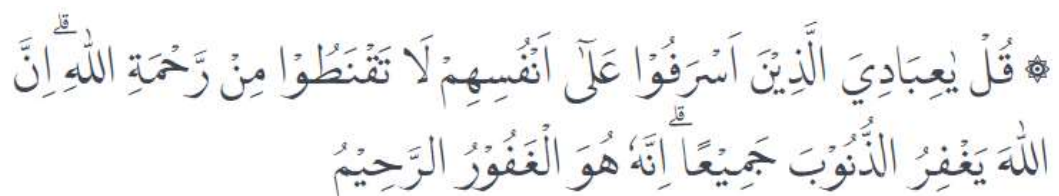 ۞ قُلْ يٰعِبَادِيَ الَّذِيْنَ اَسْرَفُوْا عَلٰٓى اَنْفُسِهِمْ لَا تَقْنَطُوْا مِنْ رَّحْمَةِ اللّٰهِ ۗاِنَّ
اللّٰهَ يَغْفِرُ الذُّنُوْبَ جَمِيْعًا ۗاِنَّهٗ هُوَ الْغَفُوْرُ الرَّحِيْمُ